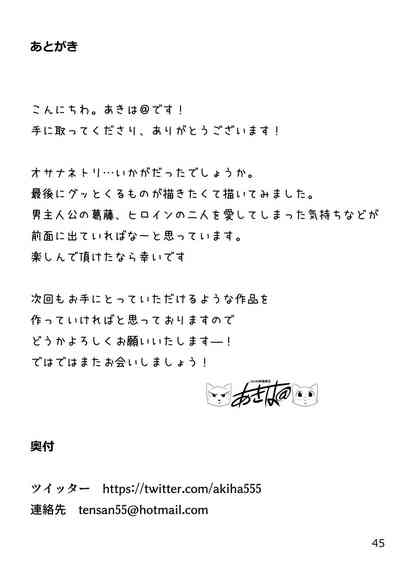 あとがき
こんにちわ。あきは＠です！
手に取ってくださり、ありがとうございます！
オサナネトリ…いかがだったでしょうか。
最後にグッとくるものが描きたくて描いてみました。
男主人公の葛藤、ヒロインの二人を愛してしまった気持ちなどが
前面に出ていればなーと思っています。
楽しんで頂けたなら幸いです
次回もお手にとっていただけるような作品を
作っていければと思っておりますので
どうかよろしくお願いいたします―！
ではではまたお会いしましょう！
あきは@
奥付
ツイッター　https://twitter.com/akiha555
連絡先　tensan55@hotmail.com
45